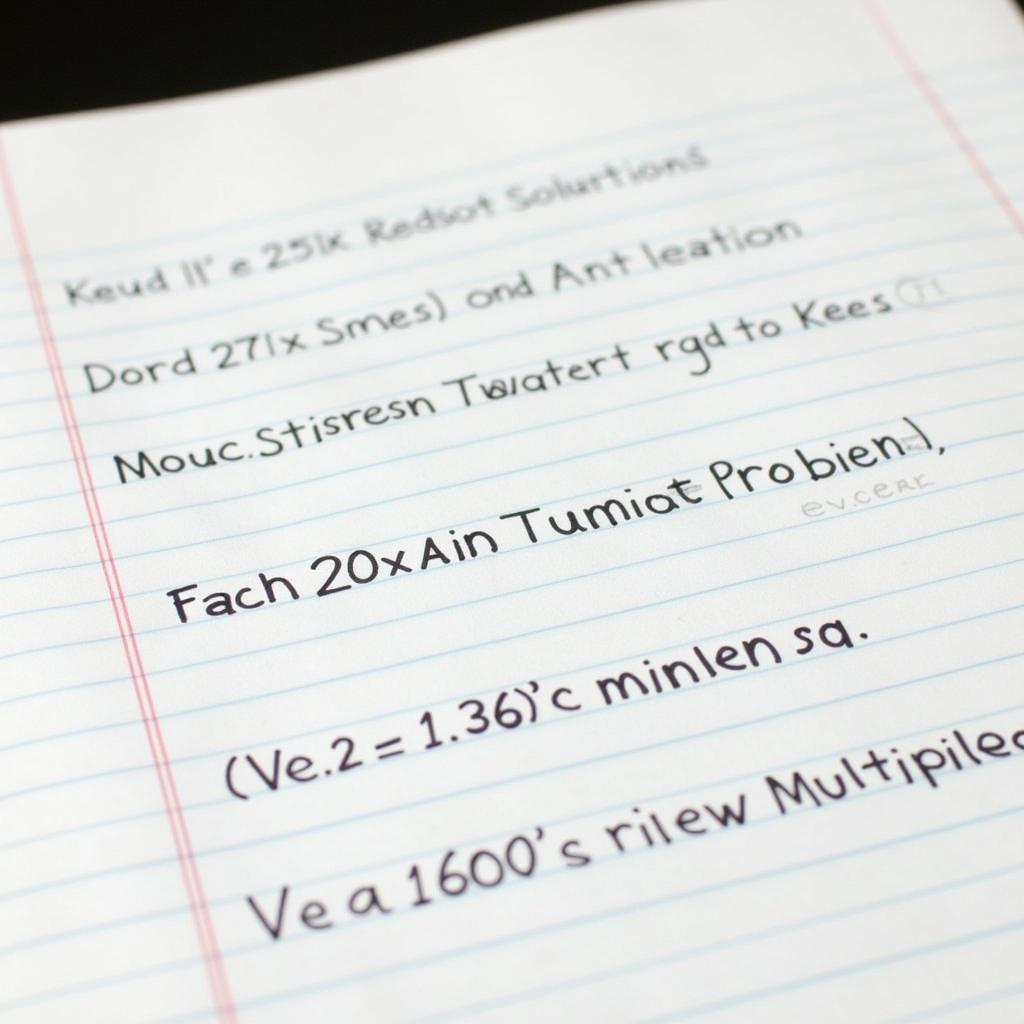 Keud 11' e 251x Redsot Solurtions
Dord 271x Smes) ond Ant leation
Mouc.Stisresn Twatert rgd to Kees
Fach 20xAin Tumiat Probien),
ev.cerk
(Ve.2 = 1.36)'c minlen sa.
Ve a 1600's rilew Multipiled